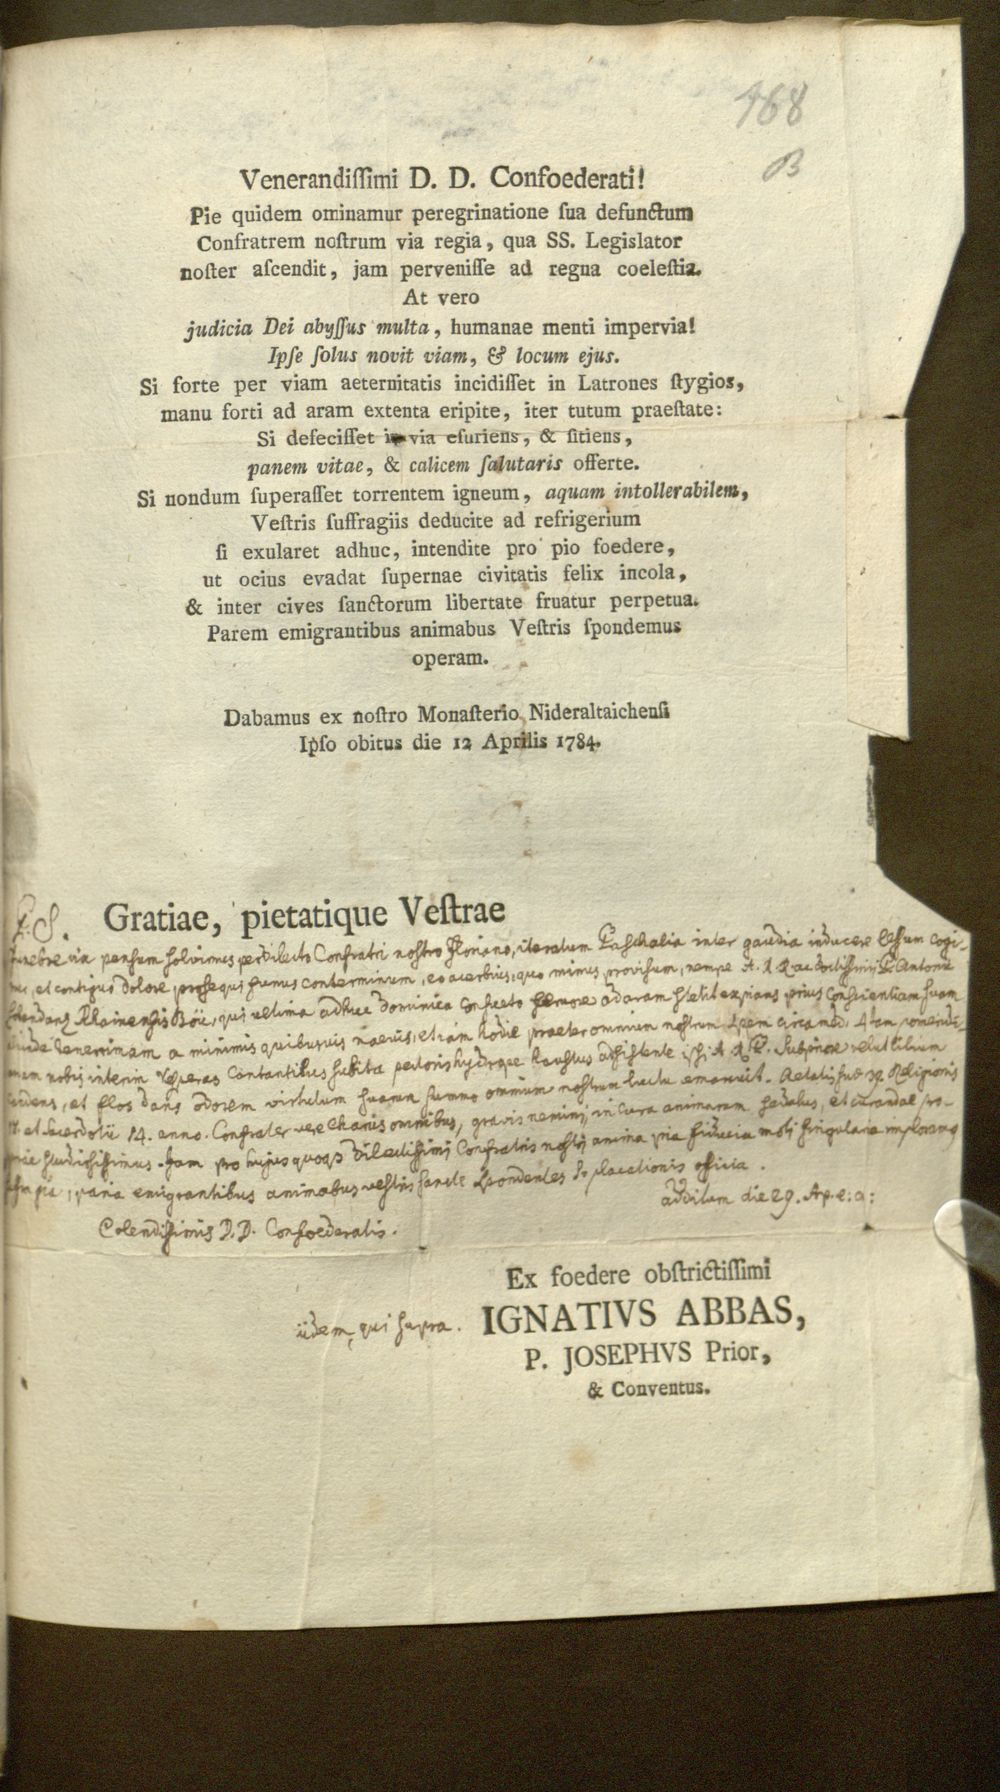 168
B
Venerandiſſimi D. D. Confoederati!
Pie quidem ominamur peregrinatione ſua defunctum
Confratrem noſtrum via regia, qua SS. Legislator
noſter aſcendit, jam perveniſſe ad regna coeleſtia.
At vero
judicia Dei abyſſus multa, humanae menti impervia!
Ipſe ſolus novit viam, & locum ejus.
Si forte per viam aeternitatis incidiſſet in Latrones ſtygios,
manu forti ad aram extenta eripite, iter tutum praeſtate:
Si defeciſſet in via eſuriens, & ſitiens,
panem vitae, & calicem ſalutaris offerte.
Si nondum ſuperaſſet torrentem igneum, aquam intollerabilem,
Veſtris ſuffragiis deducite ad refrigerium
ſi exularet adhuc, intendite pro pio foedere,
ut ocius evadat ſupernae civitatis felix incola,
& inter cives ſanctorum libertate fruatur perpetua.
Parem emigrantibus animabus Veſtris ſpondemus
operam.
Dabamus ex noſtro Monaſterio Nideraltaichenſi
Ipſo obitus die 12 Aprilis 1784.
P.S. Gratiae, pietatique Veſtrae
penſum ſolvimus perdilecto Confratri noſtro Floriano, iteratum Paſchalia inter gaudia inducere leſſum cogi-
mur, et contiguo dolore proſequi funus conterminum, eo acerbius, quo minus proviſum, nempe A. R. R. ac P. Antonii
Boii, qui ultima adhuc dominica conſueto fervore ad aram ſtetit expians prius Conſcientiam ſuam
a minimis quibusvis naevis, etiam hodie praeter omnium noſtrum ſpem circa med. 4tam
nobis interim Veſperas Cantantibus ſubita pectoris adſiſtente A. R. P. velut lilium
et flos dans odorem virtutum ſuarum ſummo omnium noſtrum luctu Aetatis ſuae Religionis
17. et Sacerdotii 14. anno. Confrater vere Charus omnibus, gravis nemini, in Cura animarum ſedulus, et
ſtudioſiſſimus. Jam pro hujus quoque Dilectiſſimi Confratris noſtri anima pia fiducia
paria emigrantibus animabus veſtris ſancte ſpondentes placationis officia.
additum die 29. Ap. e: a:
Colendiſſimis D. D. Confoederatis.
Ex foedere obſtrictiſſimi
iidem, qui ſupra. IGNATIVS ABBAS,
P. JOSEPHVS Prior,
& Conventus.